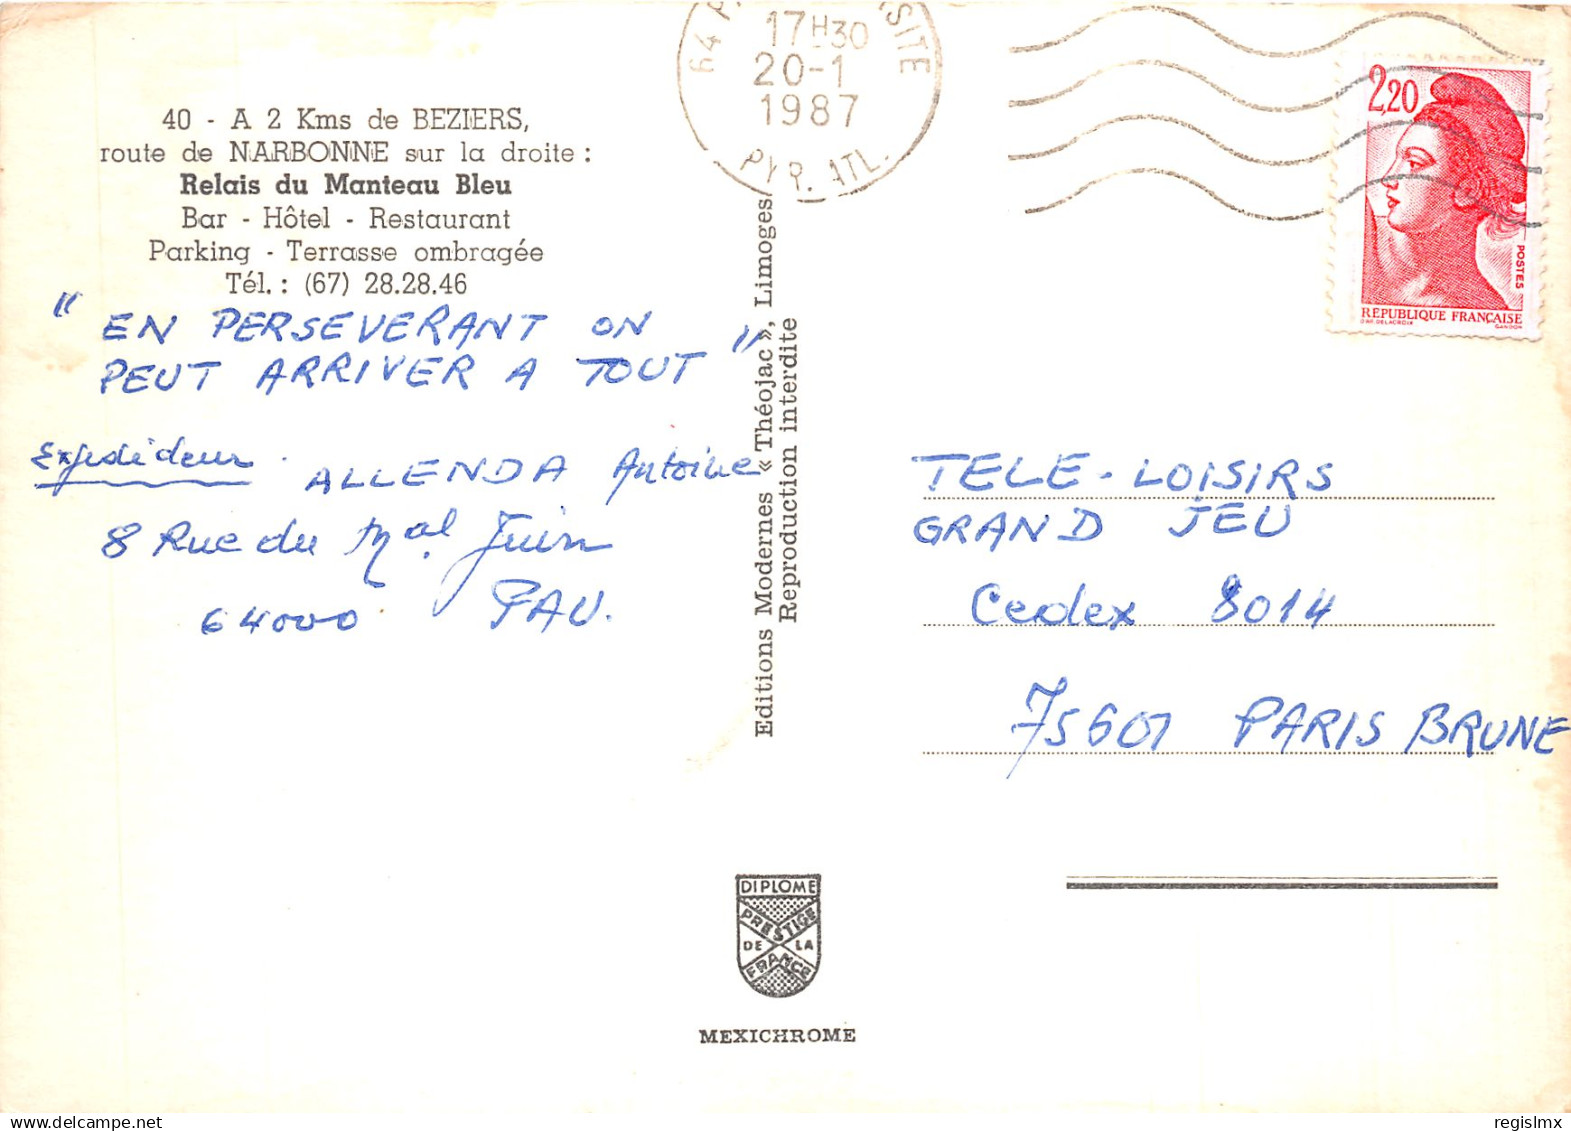 40 - A 2 Kms de BEZIERS,
route de NARBONNE sur la droite :
Relais du Manteau Bleu
Bar - Hôtel - Restaurant
Parking - Terrasse ombragée
Tél. : (67) 28.28.46
" EN PERSEVERANT ON
PEUT ARRIVER A TOUT "
Expediteur. ALLENDA Antoine
8 Rue du Mal. Juin
64000 PAU.
Editions Modernes « Théojac », Limoges
Reproduction interdite
64 SITE
17H30
20-1
1987
PYR. ATL.
2,20
POSTES
REPUBLIQUE FRANÇAISE
D'AP. DELACROIX GANDON
TELE-LOISIRS
GRAND JEU
Cedex 8014
75601 PARIS BRUNE
DIPLOME
PRESTIGE
DE LA
FRANCE
MEXICHROME
regislmx